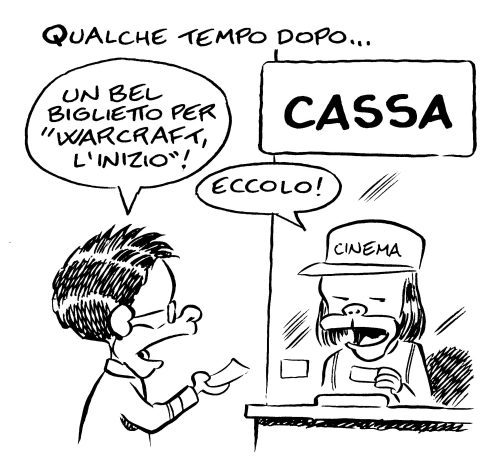 QUALCHE TEMPO DOPO...
UN BEL
BIGLIETTO PER
"WARCRAFT,
L'INIZIO"!
CASSA
ECCOLO!
CINEMA